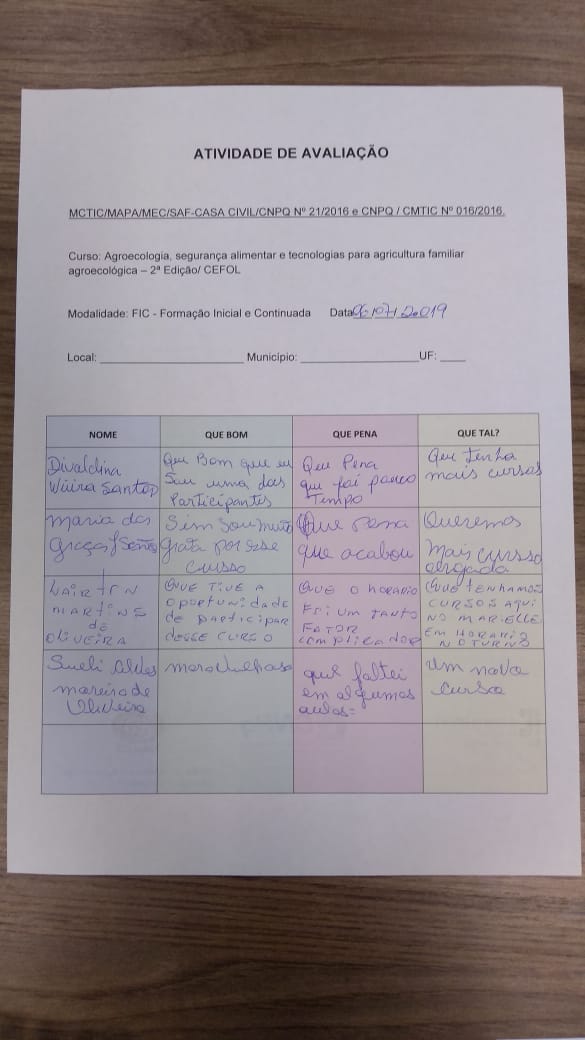 ATIVIDADE DE AVALIAÇÃO
MCTIC/MAPA/MEC/SAF-CASA CIVIL/CNPQ Nº 21/2016 e CNPQ / CMTIC Nº 016/2016.
Curso: Agroecologia, segurança alimentar e tecnologias para agricultura familiar
agroecológica – 2ª Edição/ CEFOL
Modalidade: FIC - Formação Inicial e Continuada Data 06/07/2019
Local: Município: UF:
NOME QUE BOM QUE PENA QUE TAL?
Divaldina
Vieira Santos
Que Bom que eu
Sou uma das
Participantes
Que Pena
que foi pouco
Tempo
Que Tenha
mais cursos
maria das
Graças
Sim sou muito
grata por esse
curso
Que pena
que acabou
Queremos
mais cursso
obrgada
MARTINS
DE
OLIVEIRA
QUE TIVE A
OPORTUNIDADE
DE PARTICIPAR
DESSE CURSO
QUE O HORARIO
FOI UM TANTO
FATOR
COMPLICADOR
QUE TENHAMOS
CURSOS AQUI
NO MARIELLE
EM HORARIO
NOTURNO
Sueli Alves
moreira de
Oliveira
maravilhoso
que faltei
em algumas
aulas
um novo
curso